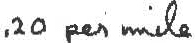 .20 per mile